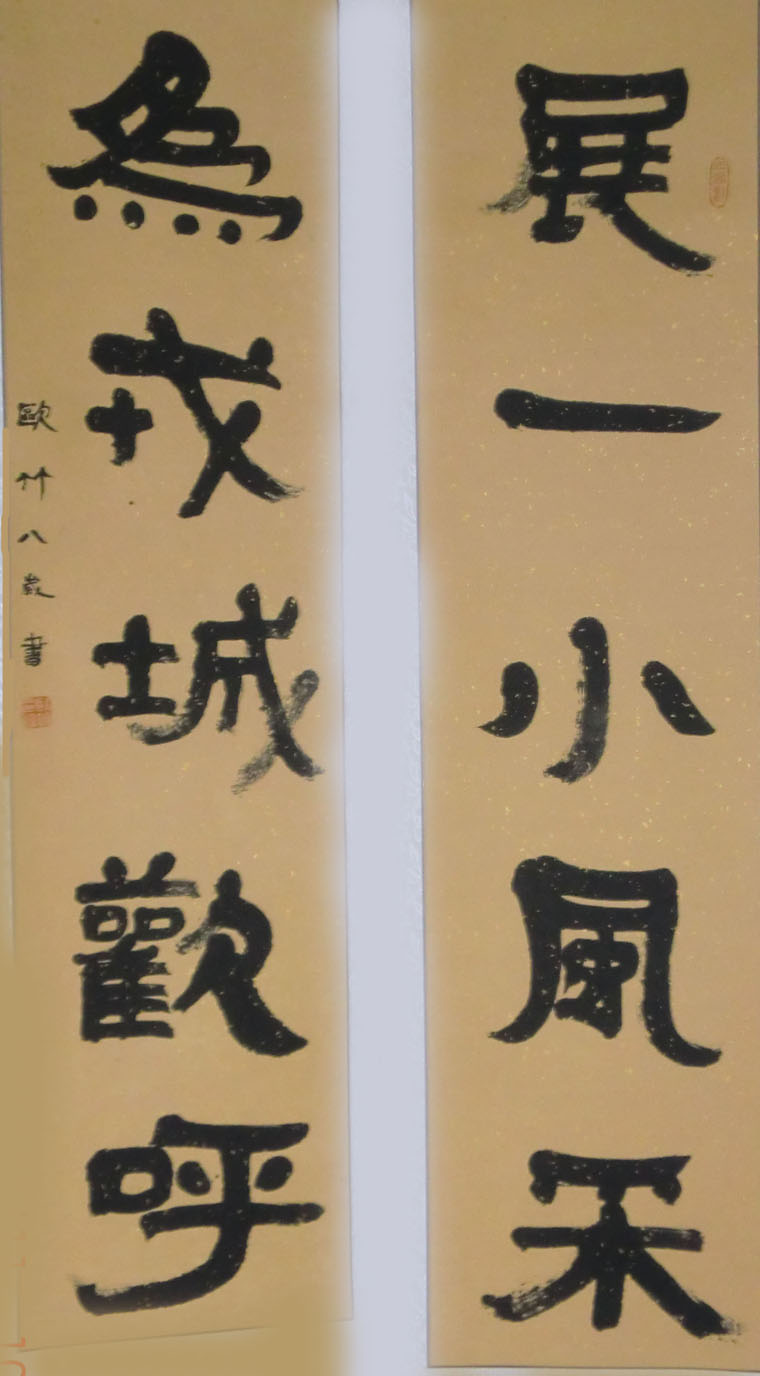 展一小風采
為戎城歡呼
歐竹八歲書